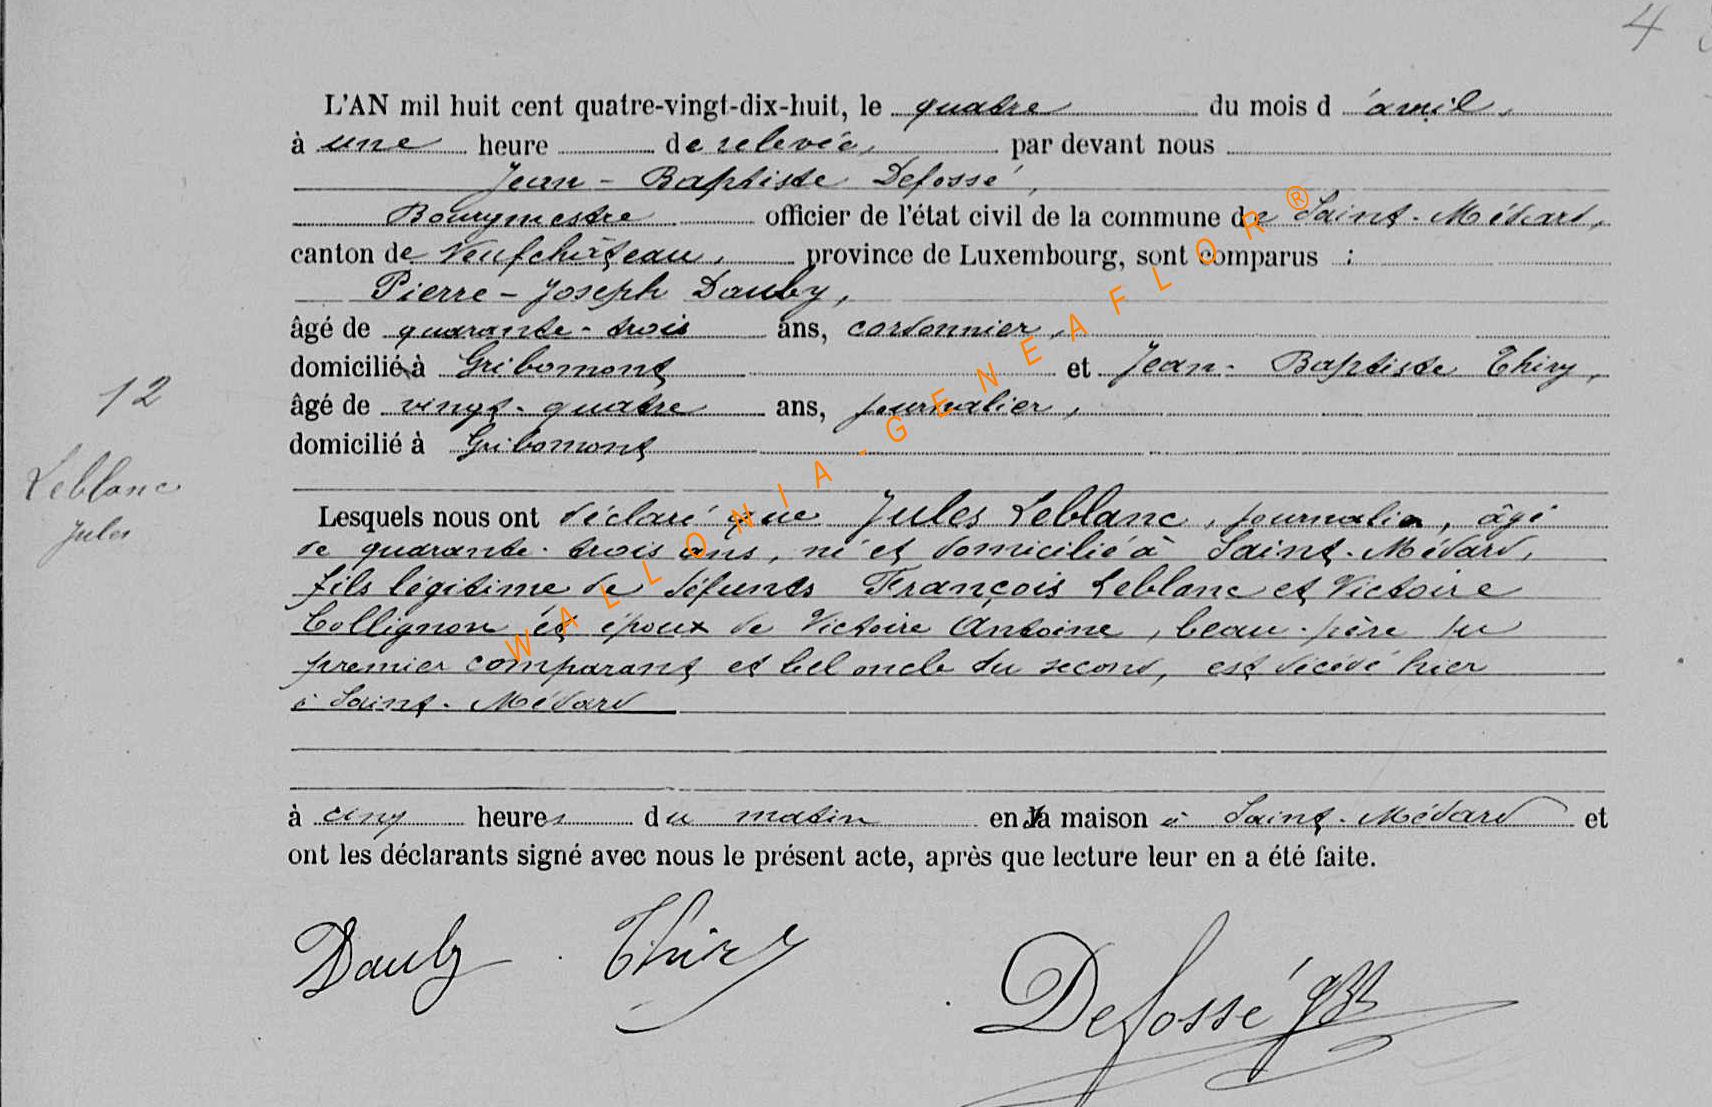 4
L'AN mil huit cent quatre-vingt-dix-huit, le quatre du mois d'avril,
à une heure de relevée, par devant nous
Jean-Baptiste Defossé,
Bourgmestre officier de l'état civil de la commune de Saint-Médard,
canton de Neufchâteau, province de Luxembourg, sont comparus :
Pierre-Joseph Dauby,
âgé de quarante-trois ans, cordonnier,
domicilié à Gribomont et Jean-Baptiste Thiry,
âgé de vingt-quatre ans, journalier,
domicilié à Gribomont
12
Leblanc
Jules
Lesquels nous ont déclaré que Jules Leblanc, journalier, âgé
de quarante-trois ans, né et domicilié à Saint-Médard,
fils légitime de défunts François Leblanc et Victoire
Collignon et époux de Victoire Antoine, beau-père du
premier comparant et bel oncle du second, est décédé hier
à Saint-Médard
à cinq heures du matin en sa maison à Saint-Médard et
ont les déclarants signé avec nous le présent acte, après que lecture leur en a été faite.
Dauby Thiry Defossé JBt
WALLONIA-GENEAFLOR®